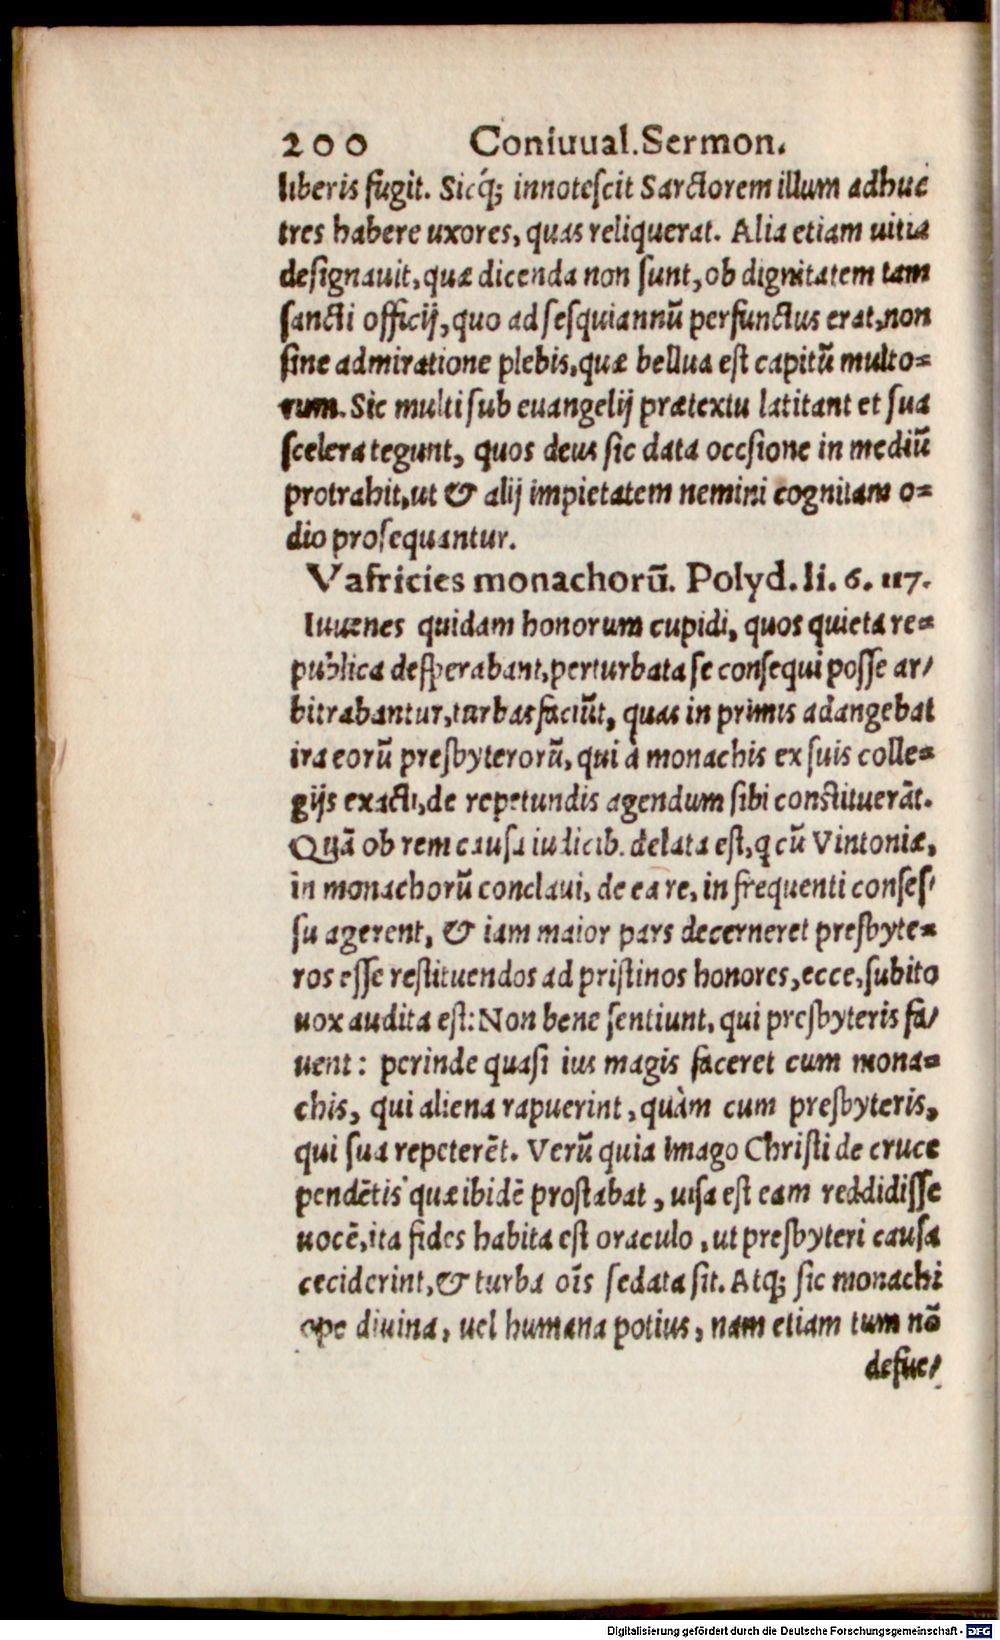 200 Conuiual. Sermon.
liberis fugit. Sicq́; innotescit Sarctorem illum adhuc
tres habere uxores, quas reliquerat. Alia etiam uitia
designauit, quæ dicenda non sunt, ob dignitatem tam
sancti officij, quo ad sesquiannū perfunctus erat, non
sine admiratione plebis, quæ bellua est capitū multo=
rum. Sic multi sub euangelij prætextu latitant et sua
scelera tegunt, quos deus sic data occsione in mediū
protrahit, ut & alij impietatem nemini cognitam o=
dio prosequantur.
Vafricies monachorū. Polyd. li. 6. 117.
Iuuenes quidam honorum cupidi, quos quieta re=
publica desperabant, perturbata se consequi posse ar/
bitrabantur, turbas faciūt, quas in primis adangebat
ira eorū presbyterorū, qui à monachis ex suis colle=
gijs exacti, de repetundis agendum sibi constituerāt.
Quā ob rem causa iudicib. delata est, q cū Vintoniæ,
in monachorū conclaui, de ea re, in frequenti conses/
su agerent, & iam maior pars decerneret presbyte=
ros esse restituendos ad pristinos honores, ecce, subito
uox audita est: Non bene sentiunt, qui presbyteris fa/
uent: perinde quasi ius magis faceret cum mona=
chis, qui aliena rapuerint, quàm cum presbyteris,
qui sua repeterēt. Verū quia Imago Christi de cruce
pendētis quæ ibidē prostabat, uisa est eam reddidisse
uocē, ita fides habita est oraculo, ut presbyteri causa
ceciderint, & turba oīs sedata sit. Atq; sic monachi
ope diuina, uel humana potius, nam etiam tum nō
defue/
Digitalisierung gefördert durch die Deutsche Forschungsgemeinschaft - DFG